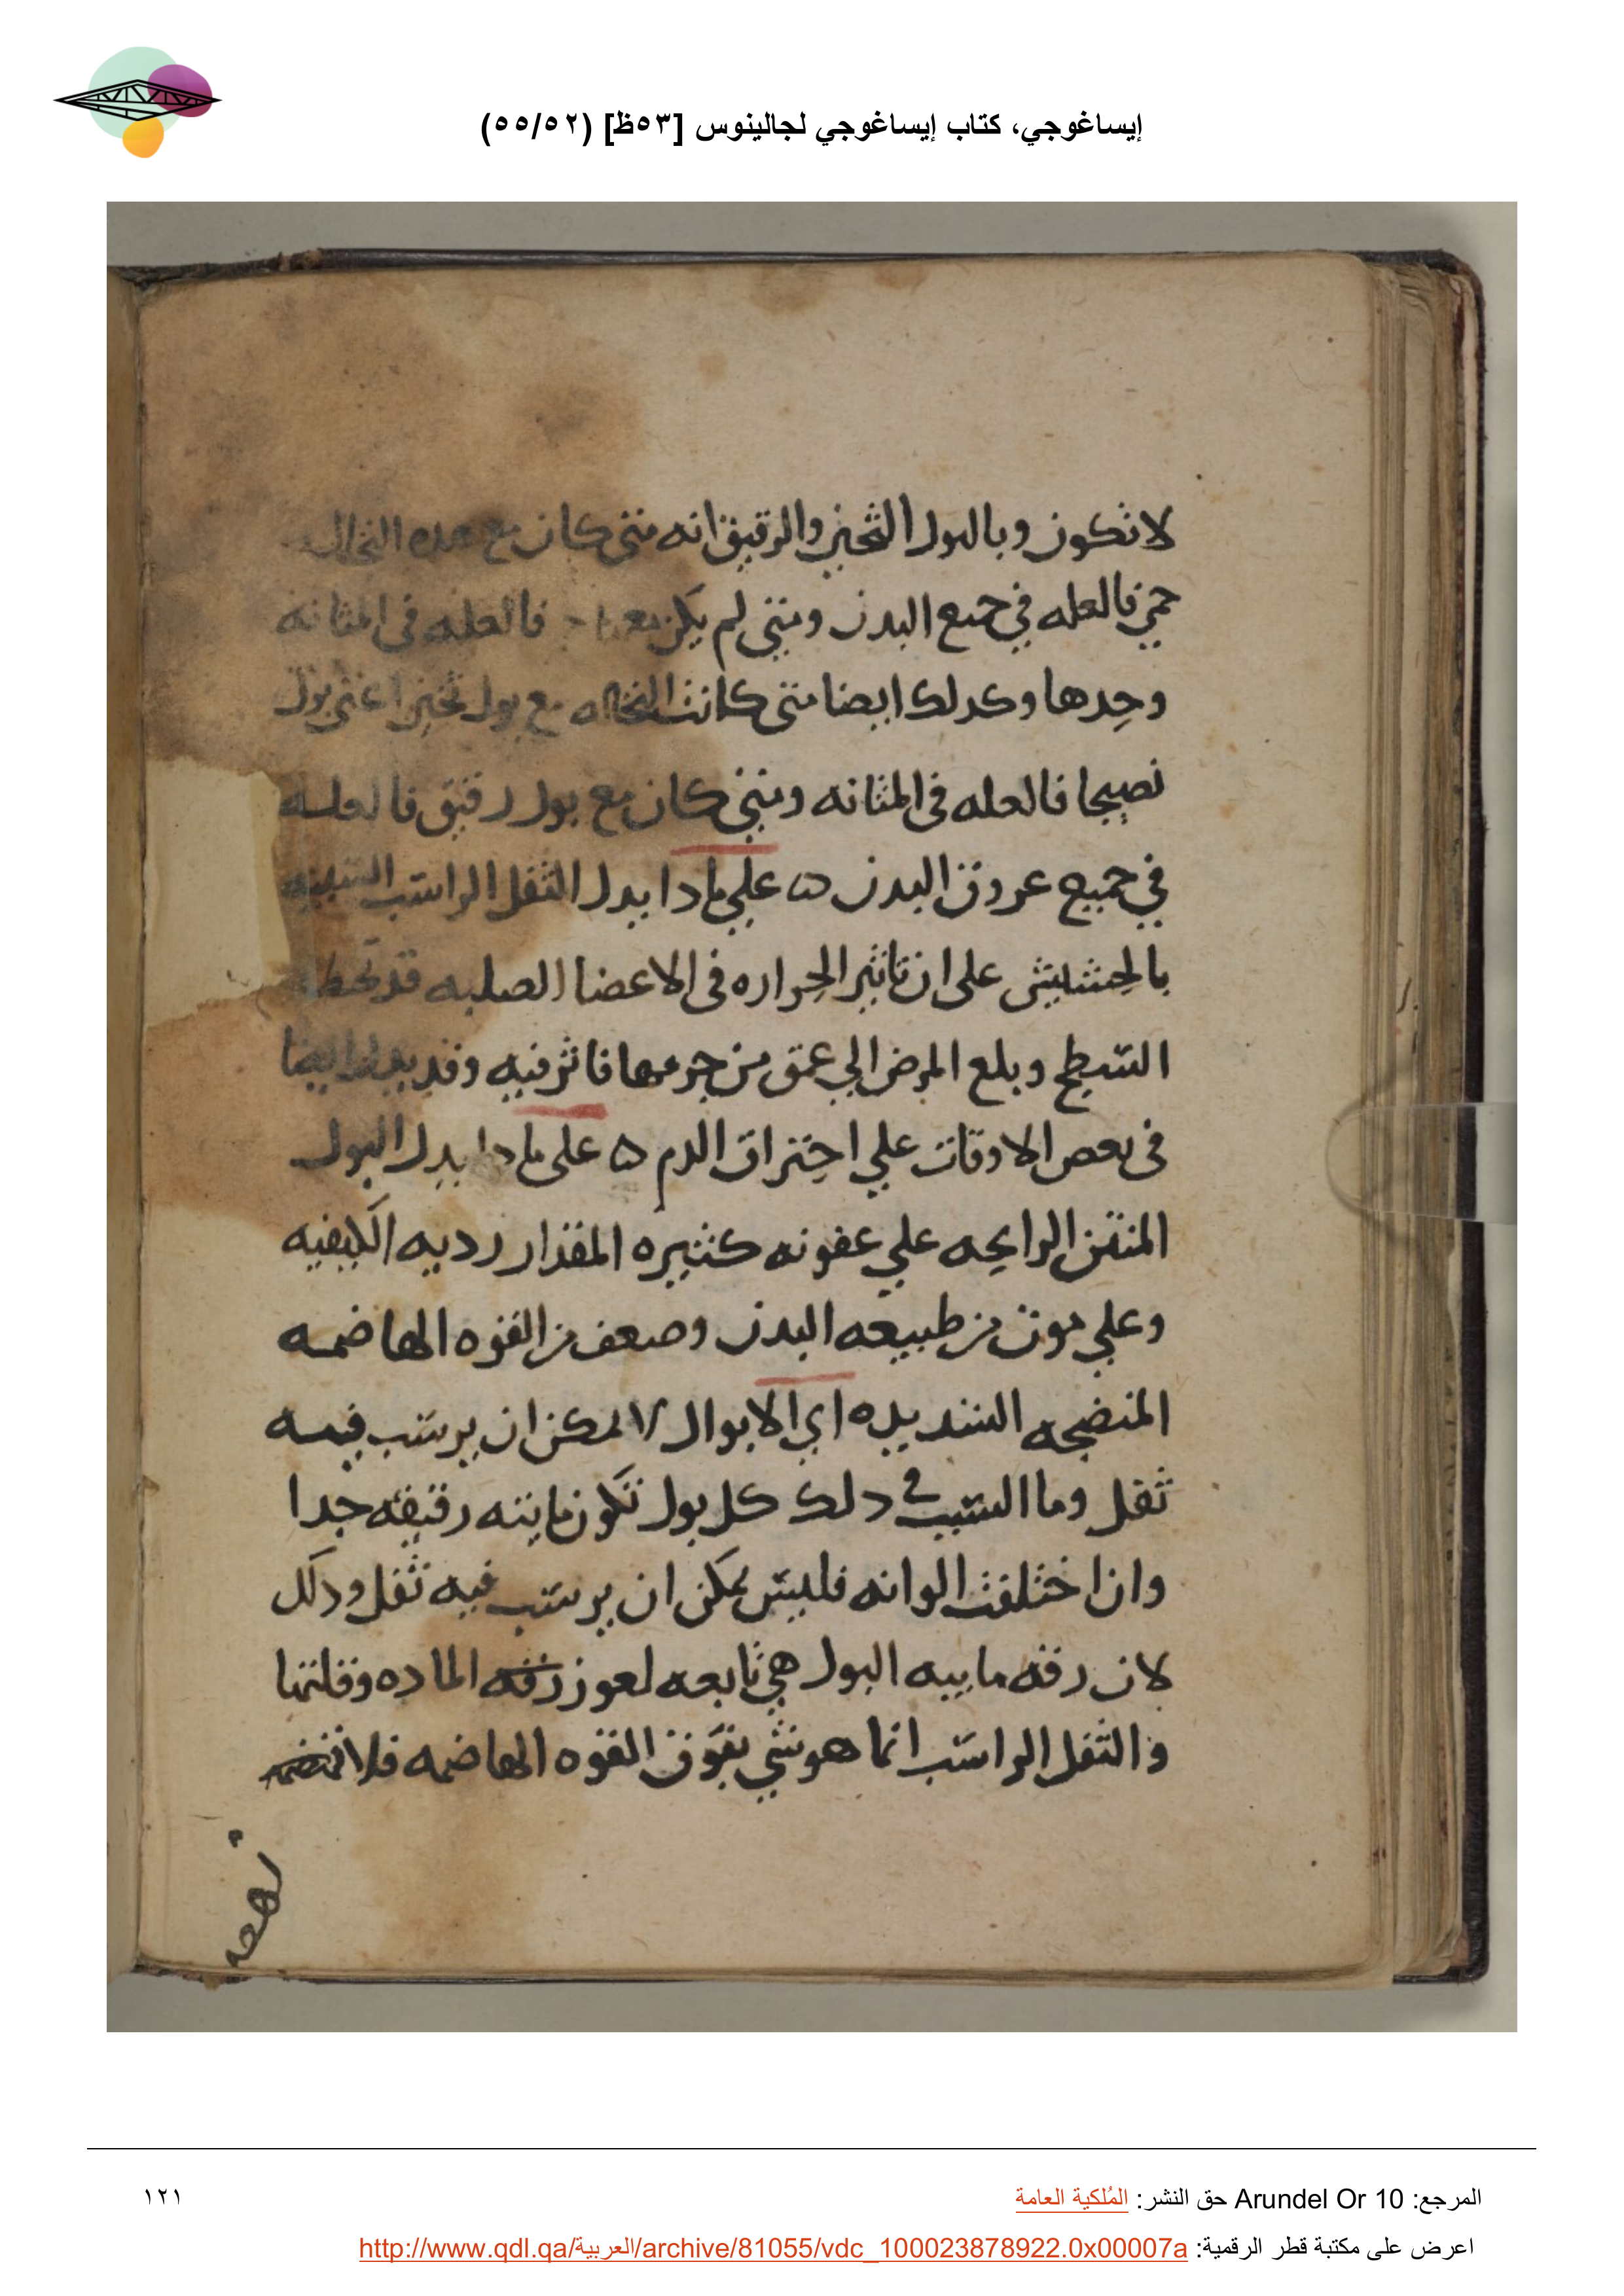 إيساغوجي، كتاب إيساغوجي لجالينوس [٥٣ظ] (٥٥/٥٢)
لا تكون وبالبول الثخين والرقيق انه متى كان مع هذه النخاله
حمى فالعله في جميع البدن ومتى لم يكن معها فالعله في المثانه
وحدها وكدلك ايضا متى كانت النخاله مع بول ثخين اعني بول
نصيجا فالعله في المثانه ومتى كان مع بول رقيق فالعله
في جميع عروق البدن ه على مادا يدل الثفل الراسب الشبيه
بالحشيش على ان تاثير الحراره في الاعضا الصلبه قد تخطا
السطح وبلغ المرض الي عمق من جرمها فاثر فيه وقد يدل ايضا
في بعض الاوقات علي احتراق الدم ه على مادا يدل البول
المنتن الرايحه علي عفونه كثيره المقدار رديه الكيفيه
وعلي موت من طبيعه البدن وضعف من القوه الهاضمه
المنضجه الشديده اي الابوال لا يمكن ان يرسب فيه
ثفل وما السبب في دلك كل بول تكون مايته رقيقه جدا
وان اختلفت الوانه فليس يمكن ان يرسب فيه ثفل ودلك
لان رقه ماييه البول هي تابعه لعوز رقه الماده وقلتها
والثفل الراسب انما هو شي يفوق القوه الهاضمه فلا
المرجع: Arundel Or 10 حق النشر: المُلكية العامة
١٢١
اعرض على مكتبة قطر الرقمية: http://www.qdl.qa/العربية/archive/81055/vdc_100023878922.0x00007a